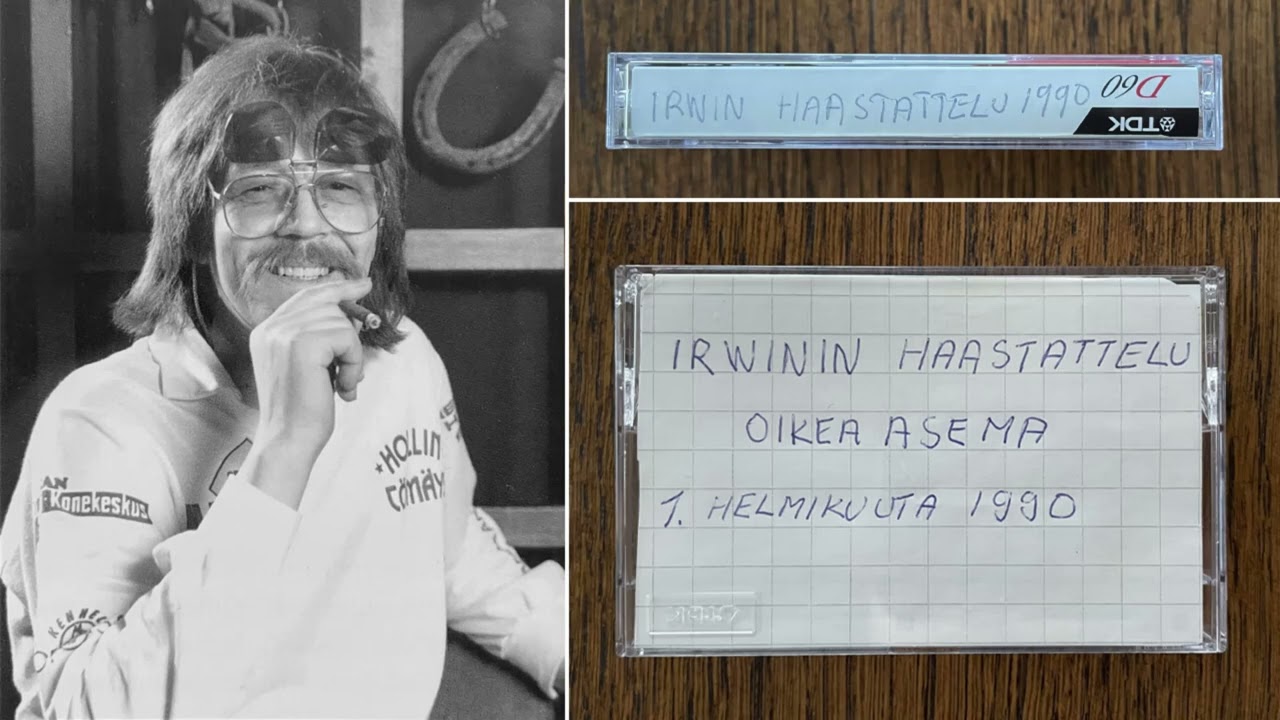 AN
Konekeskus
KENNEC
★HOLLIN
CÖMÄY
IRWIN HAASTATTELU 1990
D60
TDK
IRWININ HAASTATTELU
OIKEA ASEMA
1. HELMIKUUTA 1990